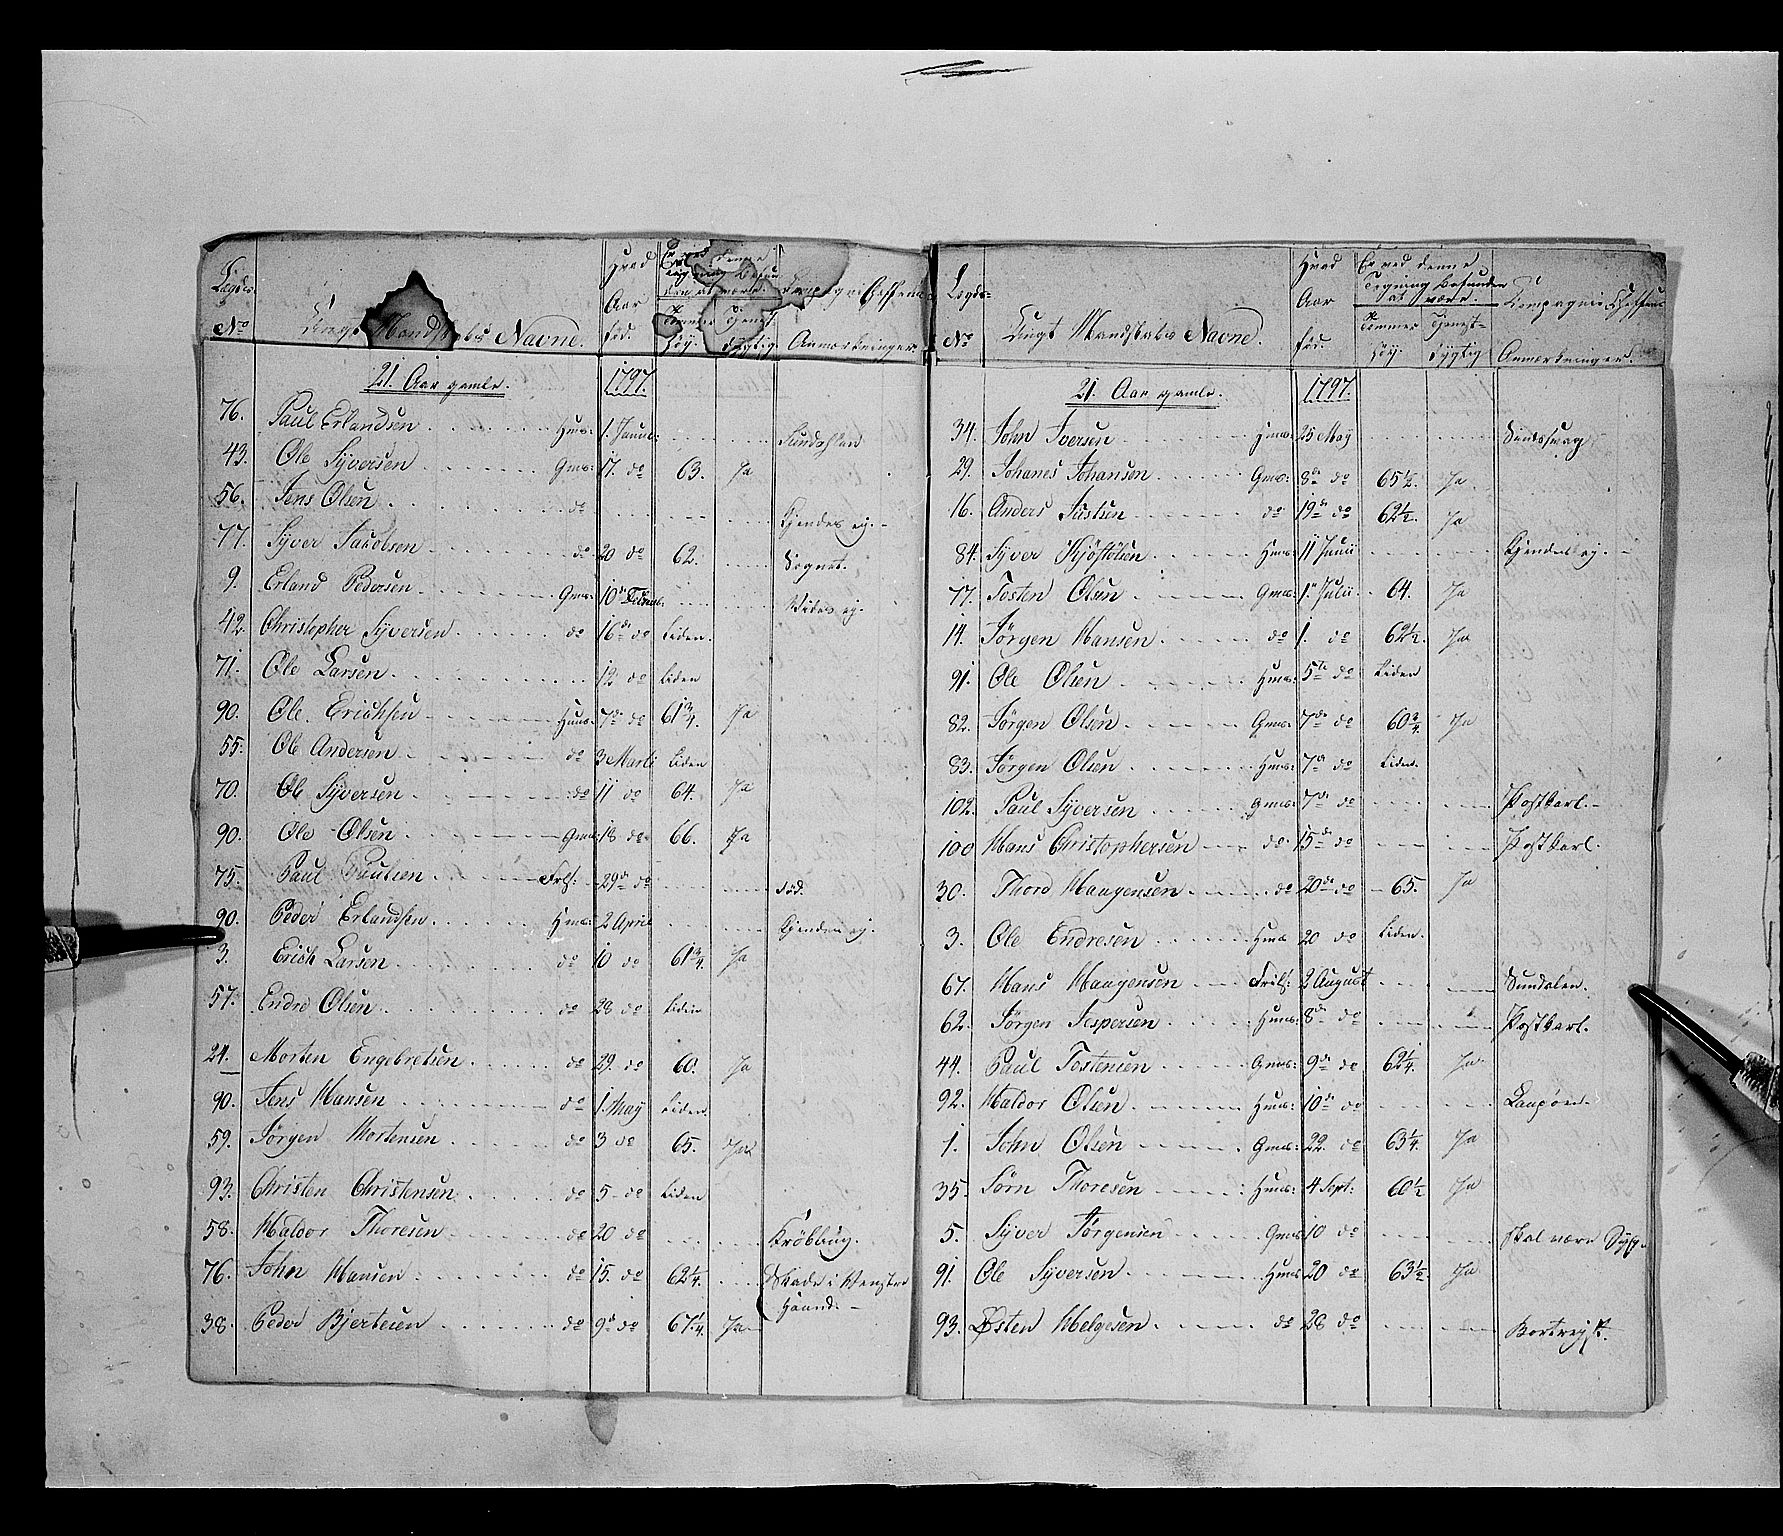 Lægds- No Ungt Mandskabs Navne. Hvad Aar fød. Er ved denne Tegning befunden at være. Tommer høy. Tjenst- dygtig Compagnie Cheffens Anmærkninger.
21. Aar gamle. 1797.
76. Paul Erlandsen Huus: 1. Januar
43. Ole Syversen Gmd: 17. do 63. Ja
56. Jens Olsen do Kjendes ej.-
77. Syver Jacobsen do 20 do 62. Svagnet.
9. Erland Pedersen Gmd: 10de Februar. Vides ej.
42. Christopher Syversen do 16de do Liden.
71. Ole Larsen 12 do Liden
90. Ole Erichsen Huus: 7de do 61 3/4. Ja
55. Ole Andersen do 3 Marti Liden
70. Ole Syversen do 11 do 64. Ja
90. Ole Olsen Gmd: 18 do 66. Ja
75. Paul Paulsen Frls: 29de do død.
90. Peder Erlandsen Huus: 2 April Kjendes ej.
3. Erich Larsen do 10 do 61 3/4. Ja
57. Endre Olsen do 28 do Liden
21. Morten Engebretsen do 29. do 60. Ja
90. Jens Hansen do 1. May Liden.
59. Jørgen Mortensen do 3 do 65. Ja
93. Christen Christensen do 5 do Liden
58. Haldor Thoresen do 20 do Krøbling.
76. John Hansen do 15. do 62 1/4. Skade i Venstre
Haand.-
38. Peder Bjertesen do 9de do 67 1/4 Ja
Lægds- No Ungt Mandskabs Navne. Hvad Aar fød. Er ved denne Tegning befunden at være. Tommer høy. Tjenst- dygtig Compagnie Cheffens Anmærkninger.
21. Aar gamle. 1797.
34. John Iversen Huus: 25 May Sindssvag
29. Johanes Johansen Gmd: 8de do 65 1/2. Ja
16. Anders Justsen do 19de do 62 1/2. Ja
84. Syver Kjøstolsen Huus: 11 Junii Kjendes ej.-
77. Tosten Olsen Gmd: 1. Julii 64. Ja
14. Jørgen Hansen do 1. do 62 1/2. Ja
91. Ole Olsen Huus: 5te do Liden
82. Jørgen Olsen Gmd: 7de do 60 3/4 Ja
83. Jørgen Olsen Huus: 7de do Liden.
102. Paul Syversen Gmd: 7de do Postkarl.-
100 Hans Christophersen do 15de do Postkarl.
30. Thord Haagensen do 20de do 65. Ja
3. Ole Endresen Huus 20 do Liden.
67. Hans Haagensen Frils: 2 August Sundalen.
62. Jørgen Jespersen Huus: 8de do Postkarl.
44. Paul Tostensen Gmd: 9de do 62 1/4. Ja
92. Haldor Olsen Huus: 10de do
1. John Olsen Gmd: 22. do 63 1/4. Ja
35. Sørn Thoresen Huus: 4 Sept: 60 1/2 Ja
5. Syver Jørgensen Gmd: 10 do skal være Syg.
91. Ole Syversen Huus 20 do 63 1/2. Ja
93. Østen Helgesen do 28 do Bortreyst.